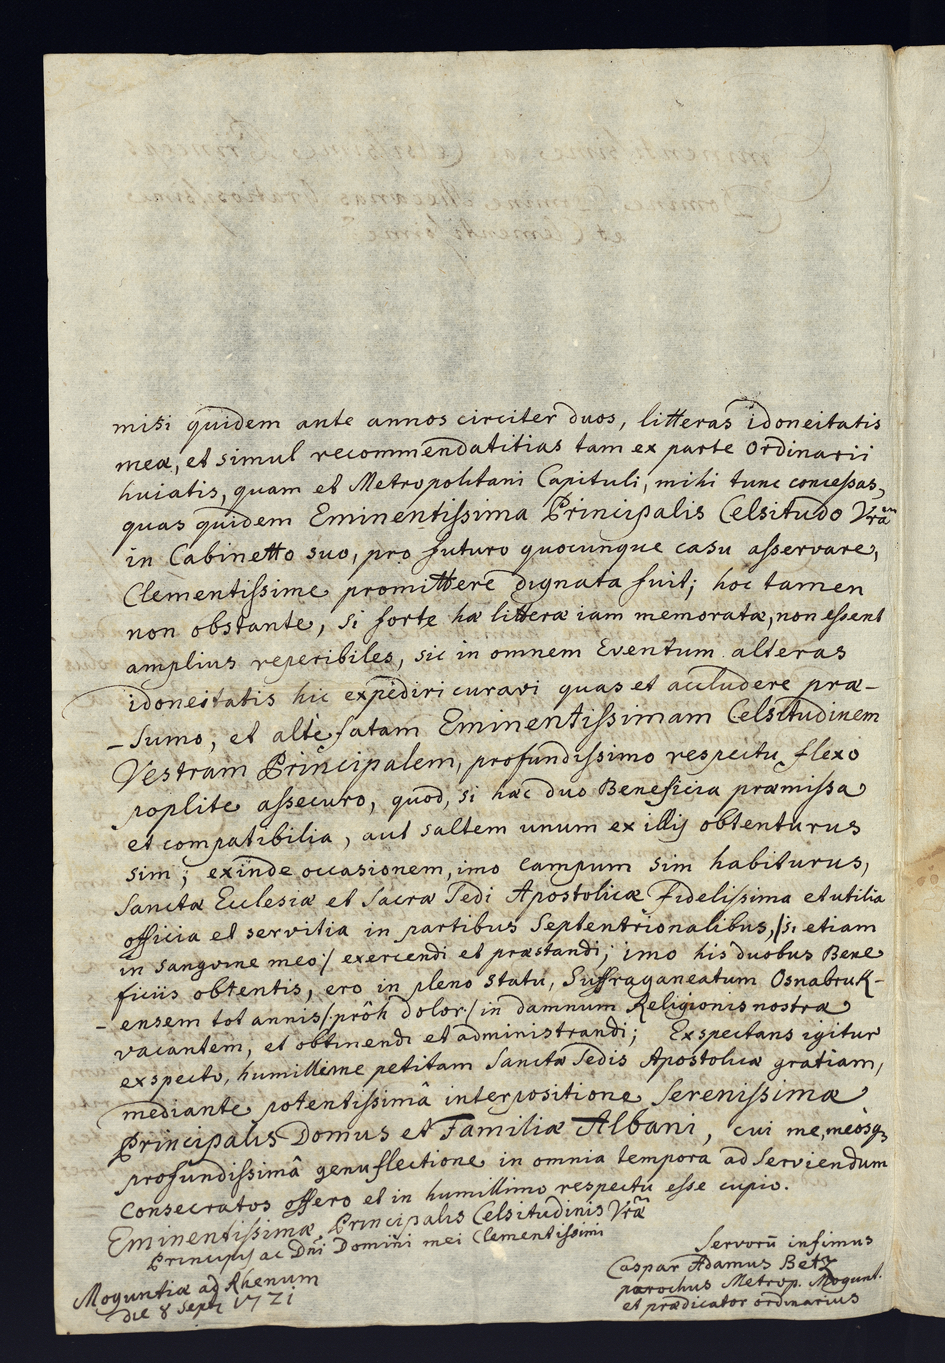 misi quidem ante annos circiter duos, litteras idoneitatis
meæ, et simul recommendatitias tam ex parte Ordinarii
huiatis, quam et Metropolitani Capituli, mihi tunc concessas,
quas quidem Eminentissima Principalis Celsitudo Vrã
in Cabinetto suo, pro futuro quocunque casu asservare,
Clementissime promittere dignata fuit; hoc tamen
non obstante, si forte hæ litteræ iam memoratæ, non essent
amplius reperibiles, sic in omnem Eventum alteras
idoneitatis hic expediri curavi quas et accludere præ-
-sumo, et altè fatam Eminentissimam Celsitudinem
Vestram Principalem, profundissimo respectu flexo
poplite assecuro, quod, si hæc duo Beneficia præmissa
et compatibilia, aut saltem unum ex illis obtenturus
sim; exinde occasionem, imo campum sim habiturus,
Sanctæ Ecclesiæ et Sacræ Sedi Apostolicæ Fidelissima et utilia
officia et servitia in partibus Septentrionalibus, /: si etiam
in sanguine meo :/ exercendi et præstandi; imo his duobus Bene
ficiis obtentis, ero in pleno statu, Suffraganeatum Osnabruk-
-ensem tot annis /: prôh dolor :/ in damnum Religionis nostræ
vacantem, et obtinendi et administrandi; Exspectans igitur
exspecto, humillime petitam Sanctæ Sedis Apostolicæ gratiam,
mediante potentissimâ interpositione Serenissimæ
Principalis Domus et Familiæ Albani, cui me, meòsq
profundissimâ genuflectione in omnia tempora ad Serviendum
Consecratos offero et in humillimo respectu esse cupio.
Eminentissimæ Principalis Celsitudinis Vræ
Principis ac Dñi Domini mei Clementissimi
Servorũ infimus
Caspar Adamus Betz
parochus Metrop. Mogunt.
et prædicator ordinarius
Moguntiæ ad Rhenum
die 8 Sept 1721